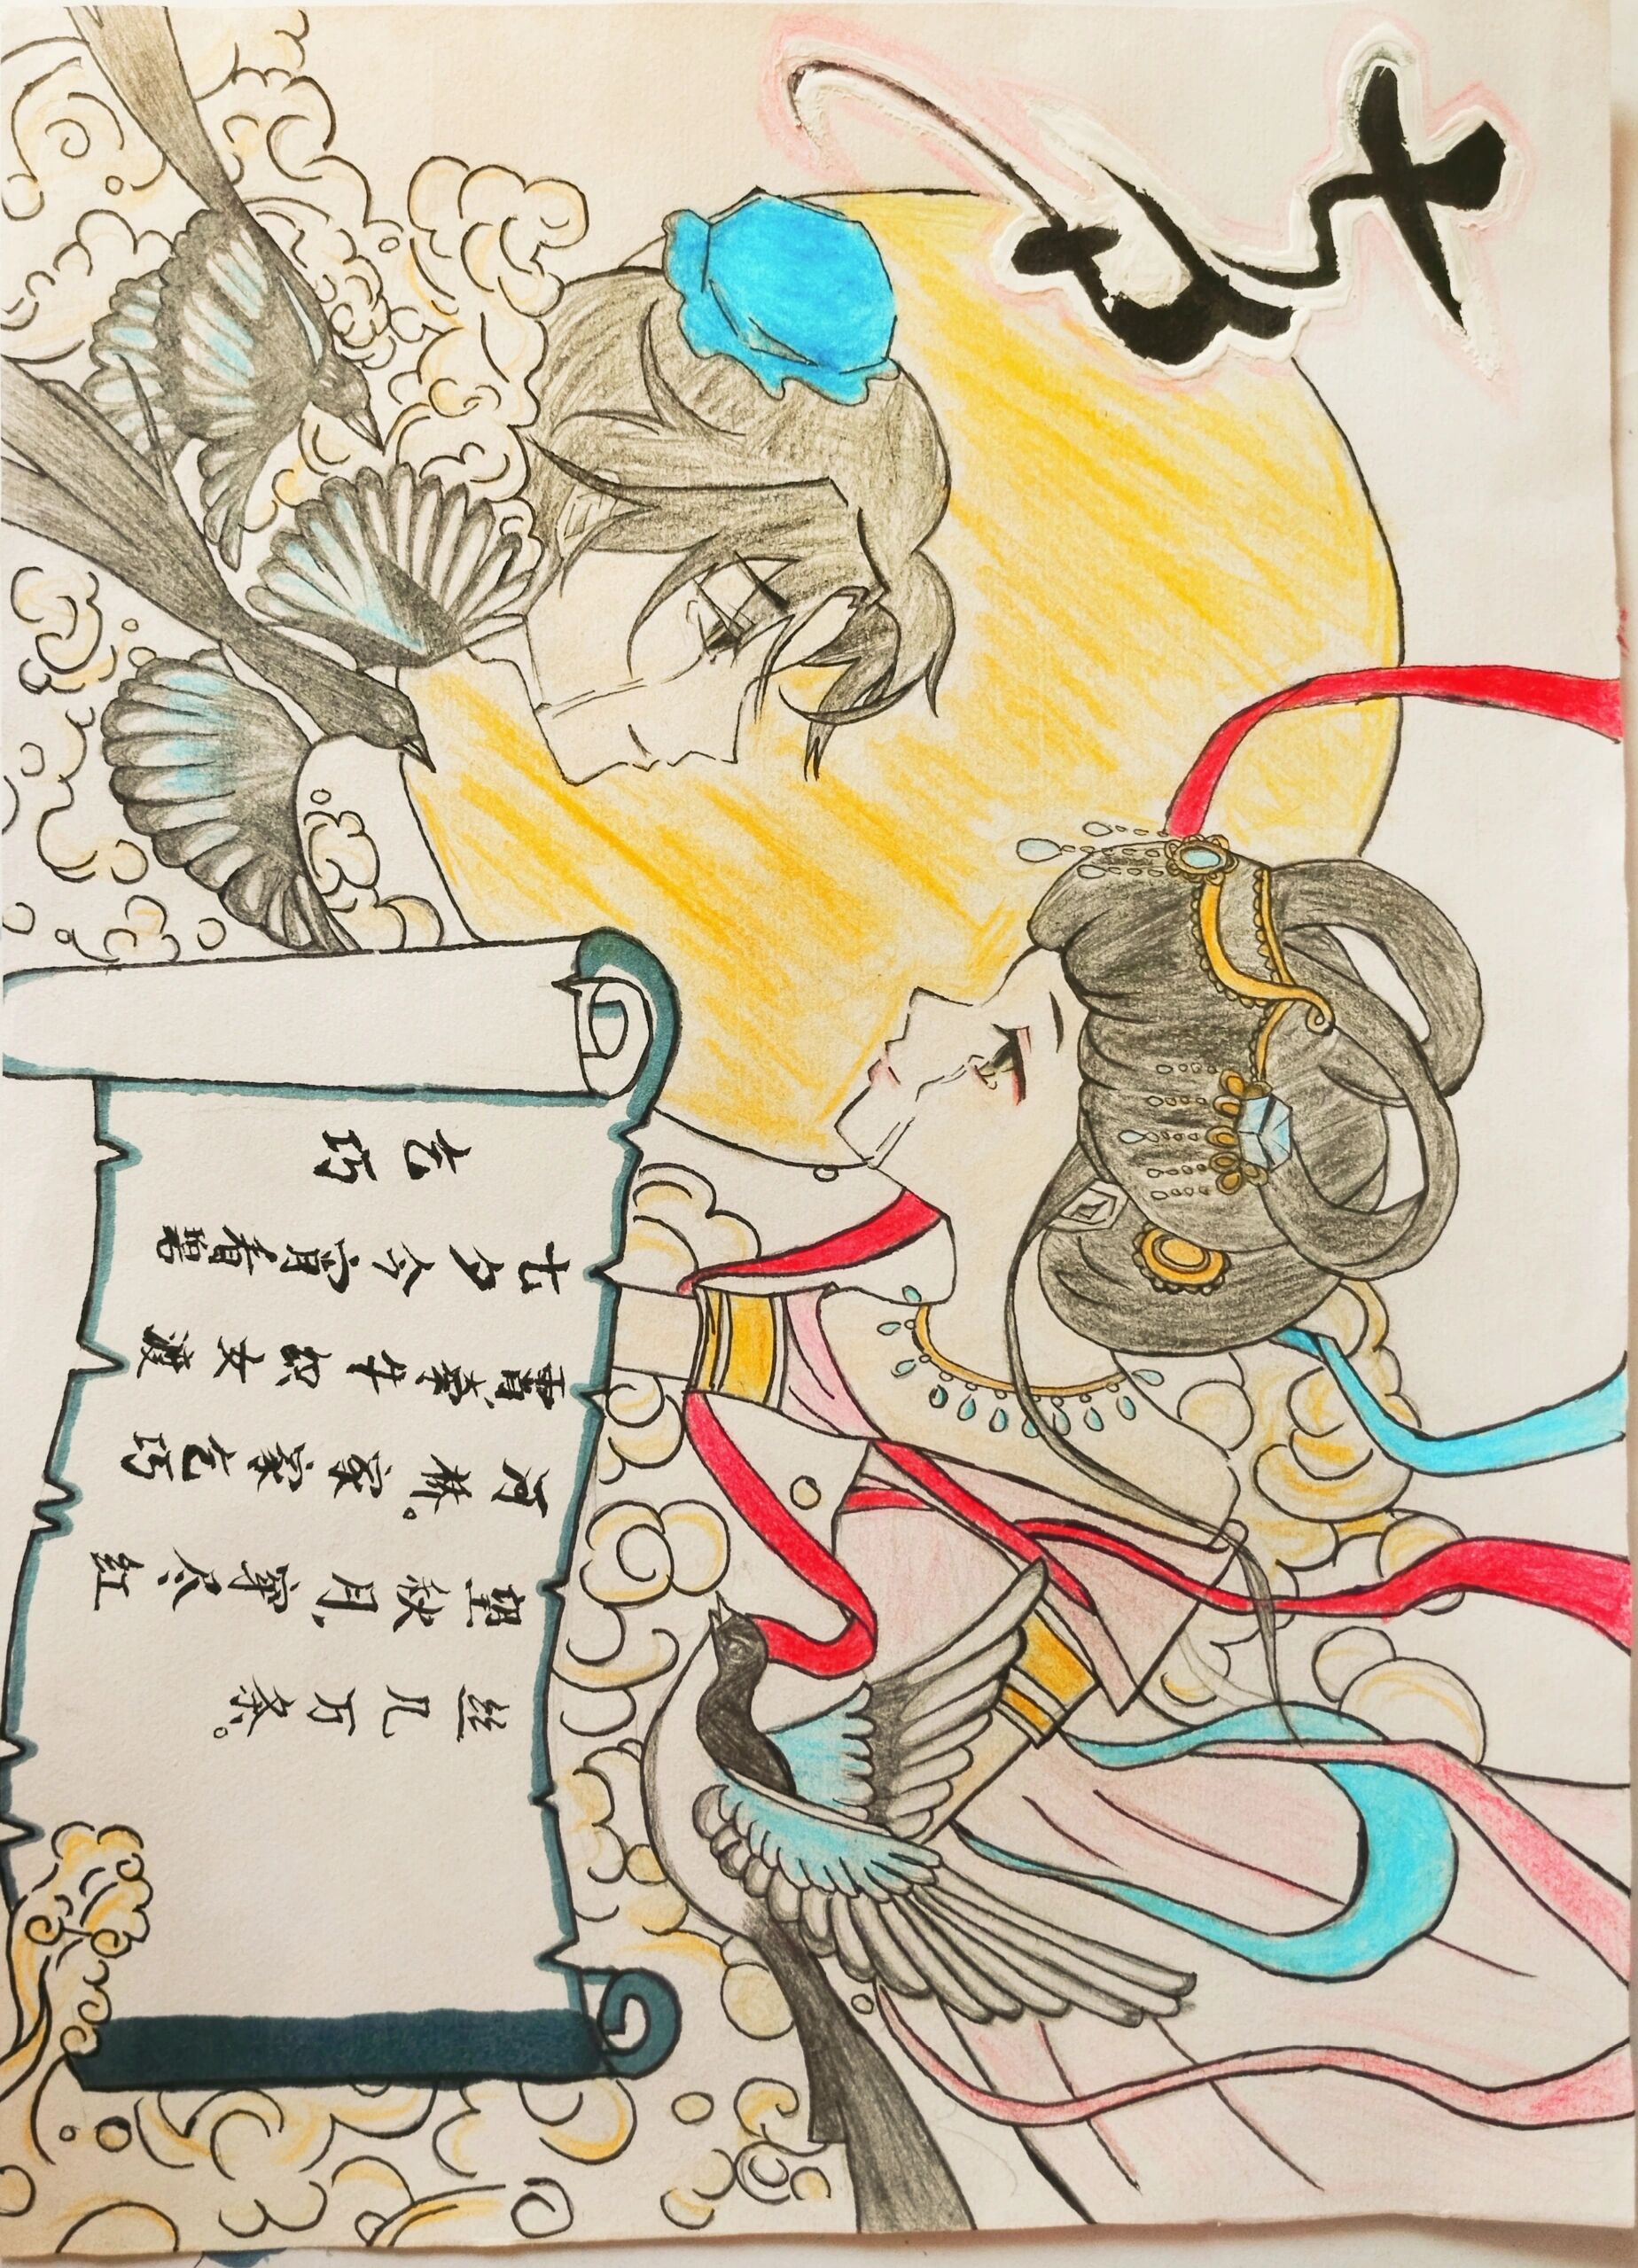 七夕
乞巧
七夕今宵看碧
霄牵牛织女渡
河桥。家家乞巧
望秋月,穿尽红
丝几万条。